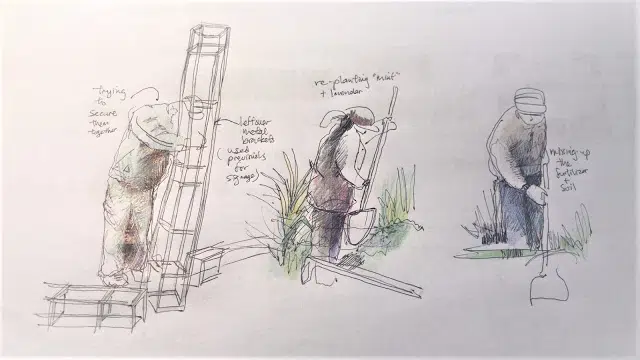 trying
to
secure
them
together
leftover
metal
brackets
(used
previously
for
signage)
re-planting "mint"
+ lavender
mixing up
the
fertilizer
+
soil